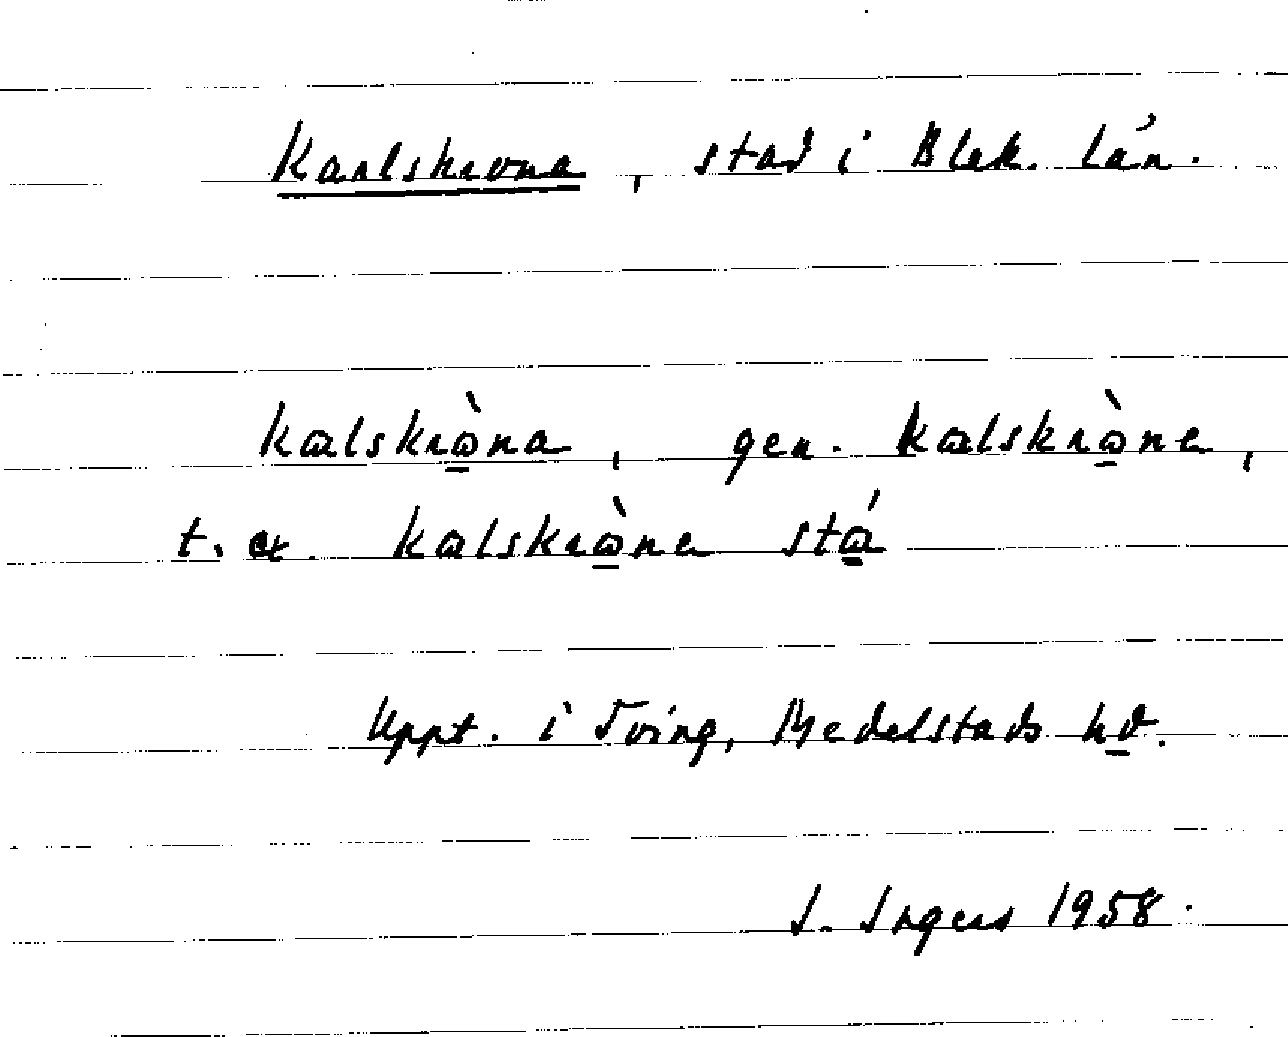 Karlskrona, stad i Blek. län.
kalskròna, gen. kalskròne,
t. ex. kalskròne stá
Uppt. i Tving, Medelstads hd.
I. Ingers 1958.